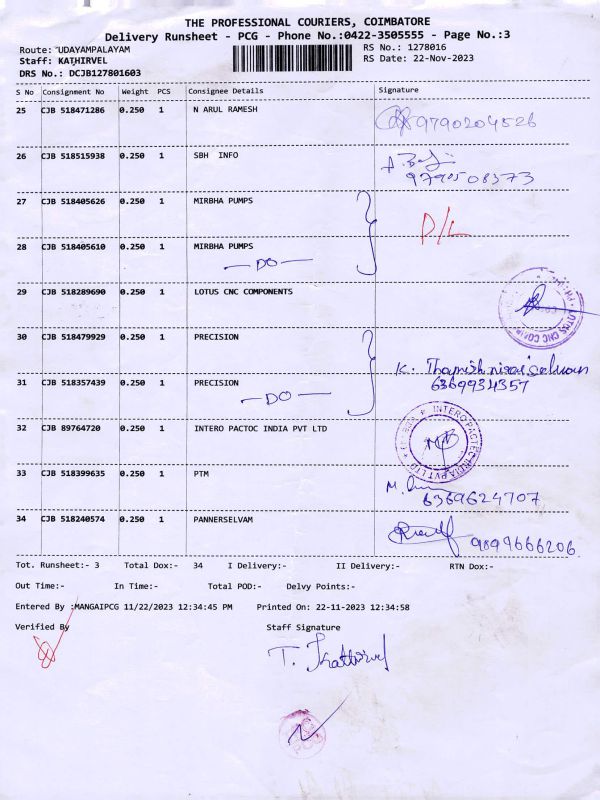 THE PROFESSIONAL COURIERS, COIMBATORE
Delivery Runsheet - PCG - Phone No.:0422-3505555 - Page No.:3
Route: UDAYAMPALAYAM RS No.: 1278016
Staff: KATHIRVEL RS Date: 22-Nov-2023
DRS No.: DCJB127801603
S No Consignment No Weight PCS Consignee Details Signature
25 CJB 518471286 0.250 1 N ARUL RAMESH 9790204526
26 CJB 518515938 0.250 1 SBH INFO
9790508373
27 CJB 518405626 0.250 1 MIRBHA PUMPS
D/L
28 CJB 518405610 0.250 1 MIRBHA PUMPS
— DO —
29 CJB 518289690 0.250 1 LOTUS CNC COMPONENTS
LOTUS CNC
30 CJB 518479929 0.250 1 PRECISION
K.
31 CJB 518357439 0.250 1 PRECISION 6369934357
— DO —
32 CJB 89764720 0.250 1 INTERO PACTOC INDIA PVT LTD
INTERO PACTEC INDIA PVT LTD
33 CJB 518399635 0.250 1 PTM
6369624707
34 CJB 518240574 0.250 1 PANNERSELVAM
9899666206
Tot. Runsheet:- 3 Total Dox:- 34 I Delivery:- II Delivery:- RTN Dox:-
Out Time:- In Time:- Total POD:- Delvy Points:-
Entered By :MANGAIPCG 11/22/2023 12:34:45 PM Printed On: 22-11-2023 12:34:58
Verified By Staff Signature
T. Kathirvel